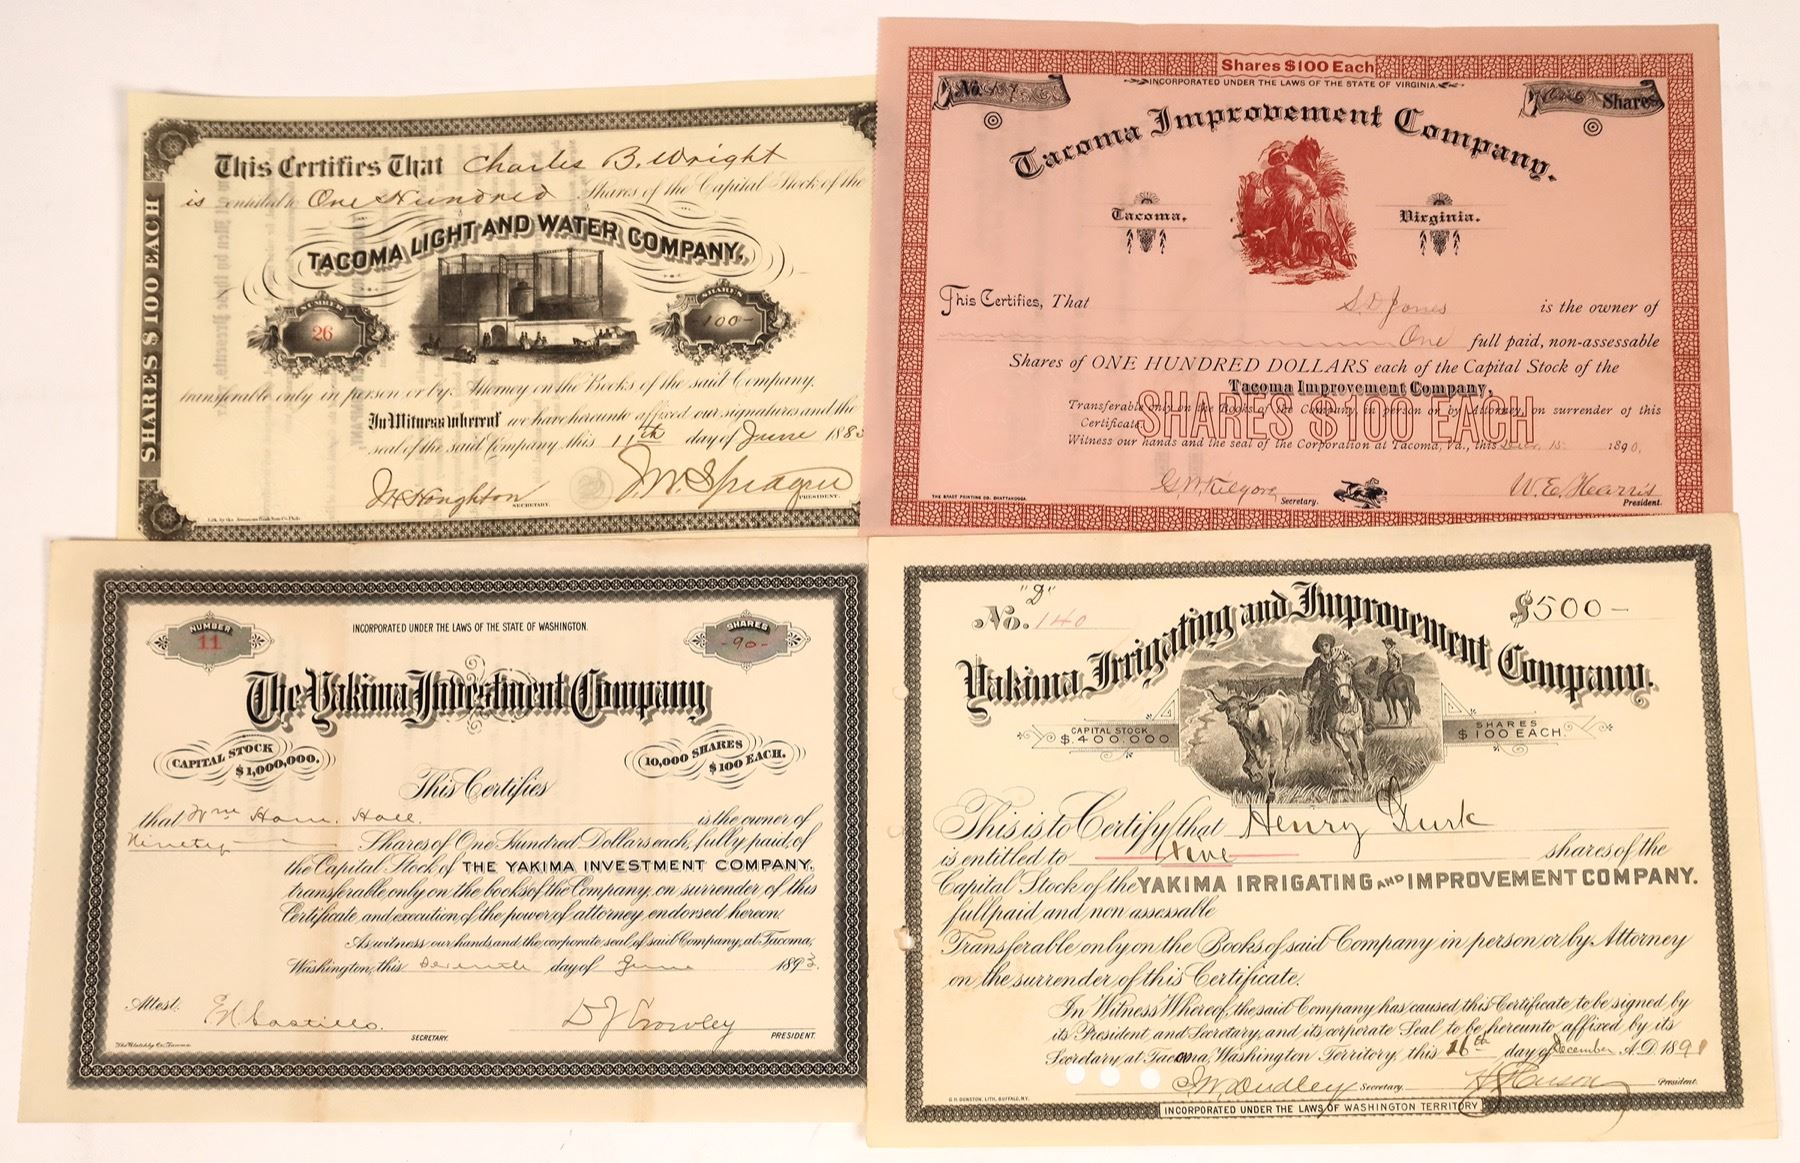 This Certifies That Charles B. Wright
is entitled to One Hundred Shares of the Capital Stock of the
TACOMA LIGHT AND WATER COMPANY,
NUMBER
26
SHARES
100
transferable only in person or by Attorney on the Books of the said Company.
In Witness whereof we have hereunto affixed our signatures and the
seal of the said Company this 11th day of June 188
J H Houghton SECRETARY.
J. W. Sprague PRESIDENT.
SHARES $100 EACH
Shares $100 Each
INCORPORATED UNDER THE LAWS OF THE STATE OF VIRGINIA.
No.
Shares
Tacoma Improvement Company.
Tacoma, Virginia.
This Certifies, That S. D. Jones is the owner of
One full paid, non-assessable
Shares of ONE HUNDRED DOLLARS each of the Capital Stock of the
Tacoma Improvement Company,
Transferable only on the Books of the Company, in person or by Attorney, on surrender of this
Certificate.
SHARES $100 EACH
Witness our hands and the seal of the Corporation at Tacoma, Va., this Dec. 15 1890,
G. W. Kilgore Secretary.
W. E. Harris President.
THE BRADT PRINTING CO. CHATTANOOGA
NUMBER
11
INCORPORATED UNDER THE LAWS OF THE STATE OF WASHINGTON.
SHARES
-90-
The Yakima Investment Company
CAPITAL STOCK
$1,000,000.
10,000 SHARES
$100 EACH.
This Certifies
that Wm Ham. Hall. is the owner of
Ninety Shares of One Hundred Dollars each, fully paid, of
the Capital Stock of THE YAKIMA INVESTMENT COMPANY,
transferable only on the books of the Company, on surrender of this
Certificate and execution of the power of attorney endorsed hereon.
As witness our hands and the corporate seal of said Company, at Tacoma,
Washington, this Seventh day of June 1893.
Attest: E H Castillo. SECRETARY.
D J Crowley PRESIDENT.
"D"
No. 140
$500-
Yakima Irrigating and Improvement Company.
CAPITAL STOCK
$.400.000
SHARES
$100 EACH.
This is to Certify that Henry
is entitled to five shares of the
Capital Stock of the YAKIMA IRRIGATING AND IMPROVEMENT COMPANY.
full paid and non assessable
Transferable only on the Books of said Company in person or by Attorney
on the surrender of this Certificate.
In Witness Whereof, the said Company has caused this Certificate to be signed by
its President and Secretary, and its corporate Seal to be hereunto affixed by its
Secretary at Tacoma, Washington Territory, this 16th day of December A.D. 1891
J. W. Dudley Secretary.
President.
G.H. DUNSTON, LITH, BUFFALO, N.Y.
INCORPORATED UNDER THE LAWS OF WASHINGTON TERRITORY